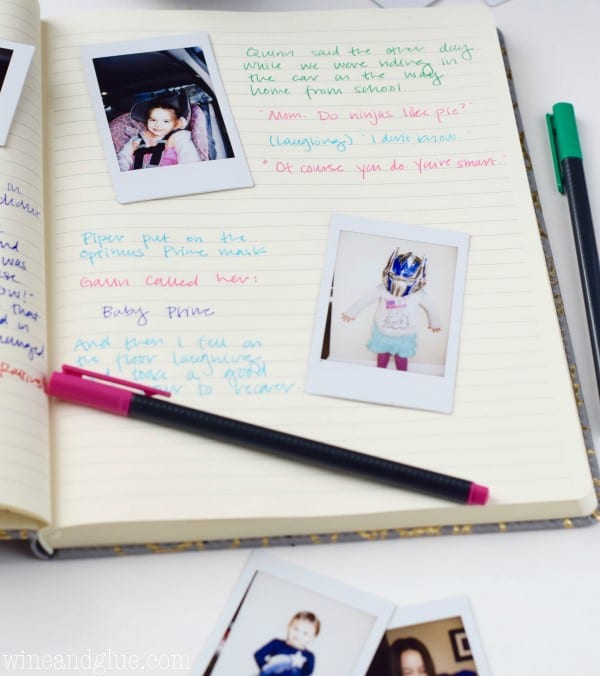 Quinn said the other day
while we were riding in
the car on the way
home from school.
"Mom. Do ninjas like pie?"
(laughing) "I don't know."
"Of course you do you're smart."
in
and
was
that
d in
Piper put on the
optimus Prime mask
Gavin called her:
Baby Prime
And then I fell on
the floor laughing
and took a good
to recover.
wineandglue.com